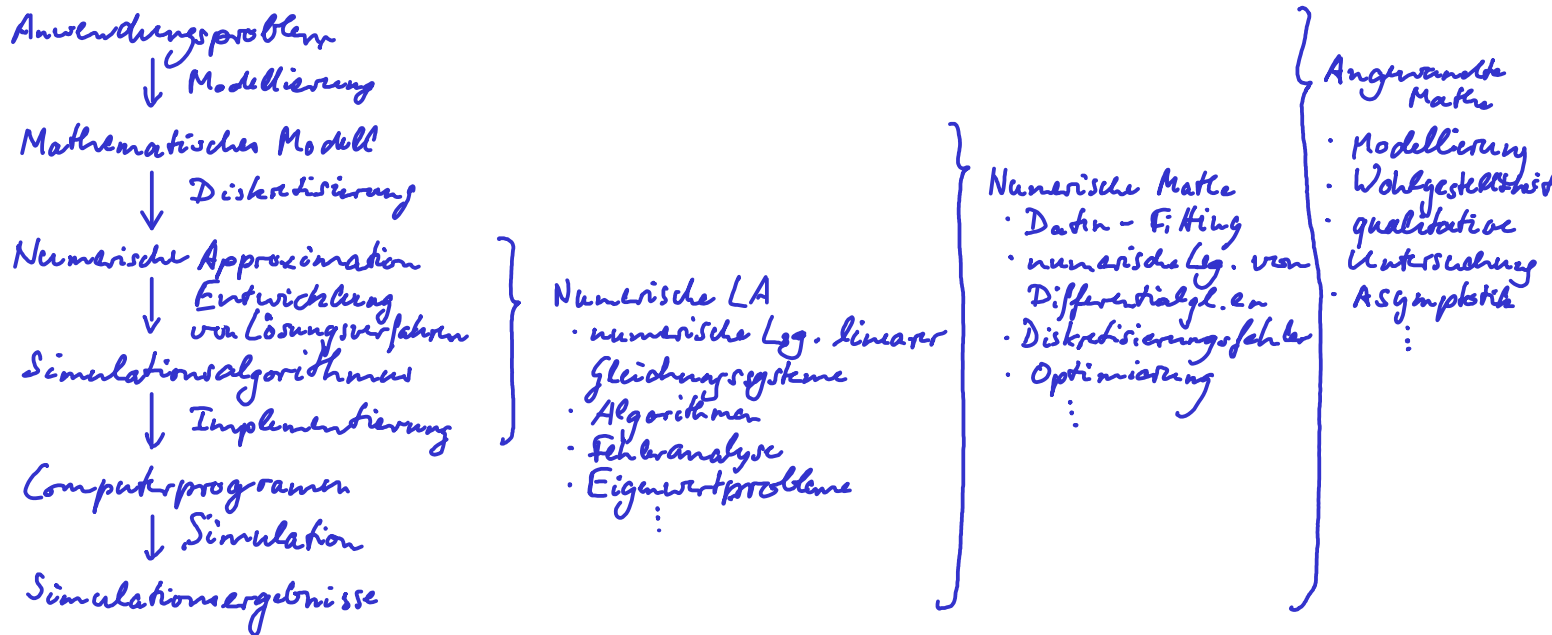 Anwendungsproblem
↓ Modellierung
Mathematisches Modell
↓ Diskretisierung
Numerische Approximation
↓ Entwicklung
von Lösungsverfahren
Simulationsalgorithmus
↓ Implementierung
Computerprogramen
↓ Simulation
Simulationsergebnisse
Numerische LA
· numerische Lsg. linearer
Gleichungssysteme
· Algorithmen
· Fehleranalyse
· Eigenwertprobleme
⋮
Numerische Mathe
· Daten-Fitting
· numerische Lsg. von
Differentialgl.en
· Diskretisierungsfehler
· Optimierung
⋮
Angewandte
Mathe
· Modellierung
· Wohlgestelltheit
· qualitative
Untersuchung
· Asymptotik
⋮